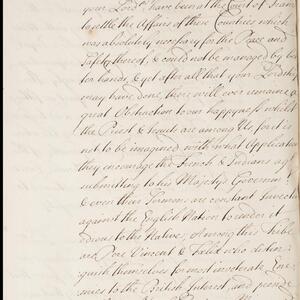 your Lordp. have been at the Court of Fran
to settle the Affairs of these Countries which
was absolutely necessary for the Peace and
Safety thereof, & could not be managed by bet
ter hands, & yet after all that your Lordship
may have done, there will ever remain a
great Obstruction to our happyness whilst
the Priest & Jesuits are among Us for it is
not to be imagined with what Application
they encourage the French & Indians agt
submitting to his Majestys Governmt.
& even their Sermons are constant Invecti
against the English Nation to render it
odious to the Natives, Among this Tribe
are Pere Vincent & Felix who distin
guish themselves for most inveterate Ene
mies to the British Interest, and presume